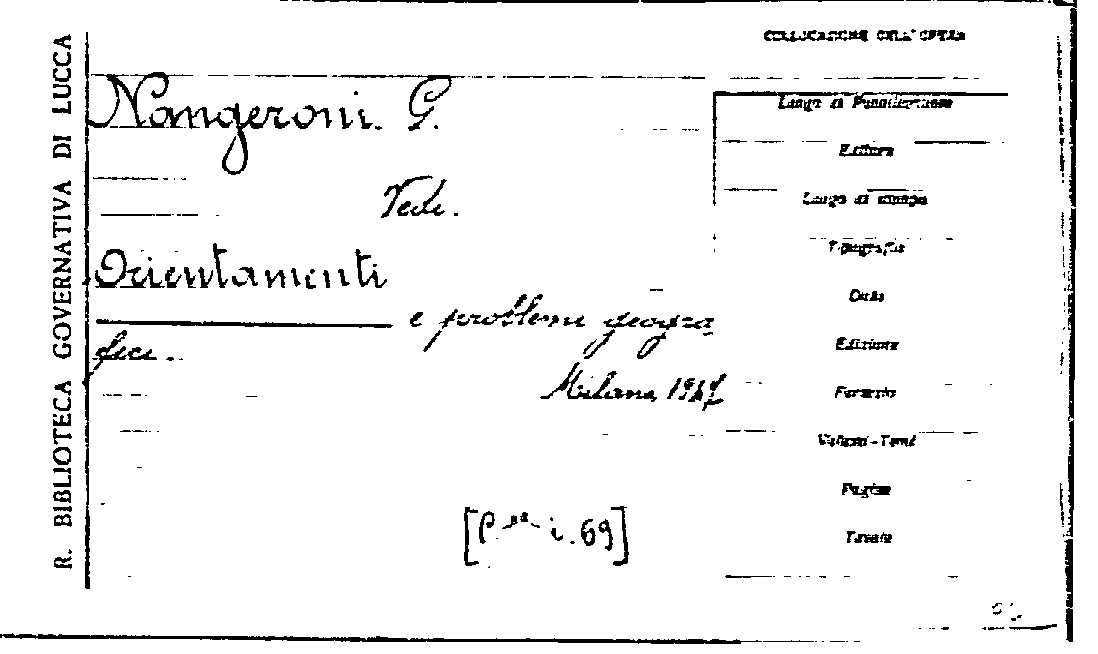 R. BIBLIOTECA GOVERNATIVA DI LUCCA
Nangeroni. G.
Vedi.
Orientamenti
e problemi geogra
fici.
Milano, 1947
[P.za i. 69]
COLLOCAZIONE DELL'OPERA
Luogo di Pubblicazione
Editore
Luogo di stampa
Tipografia
Data
Edizione
Formato
Volumi-Tomi
Pagine
Tavole